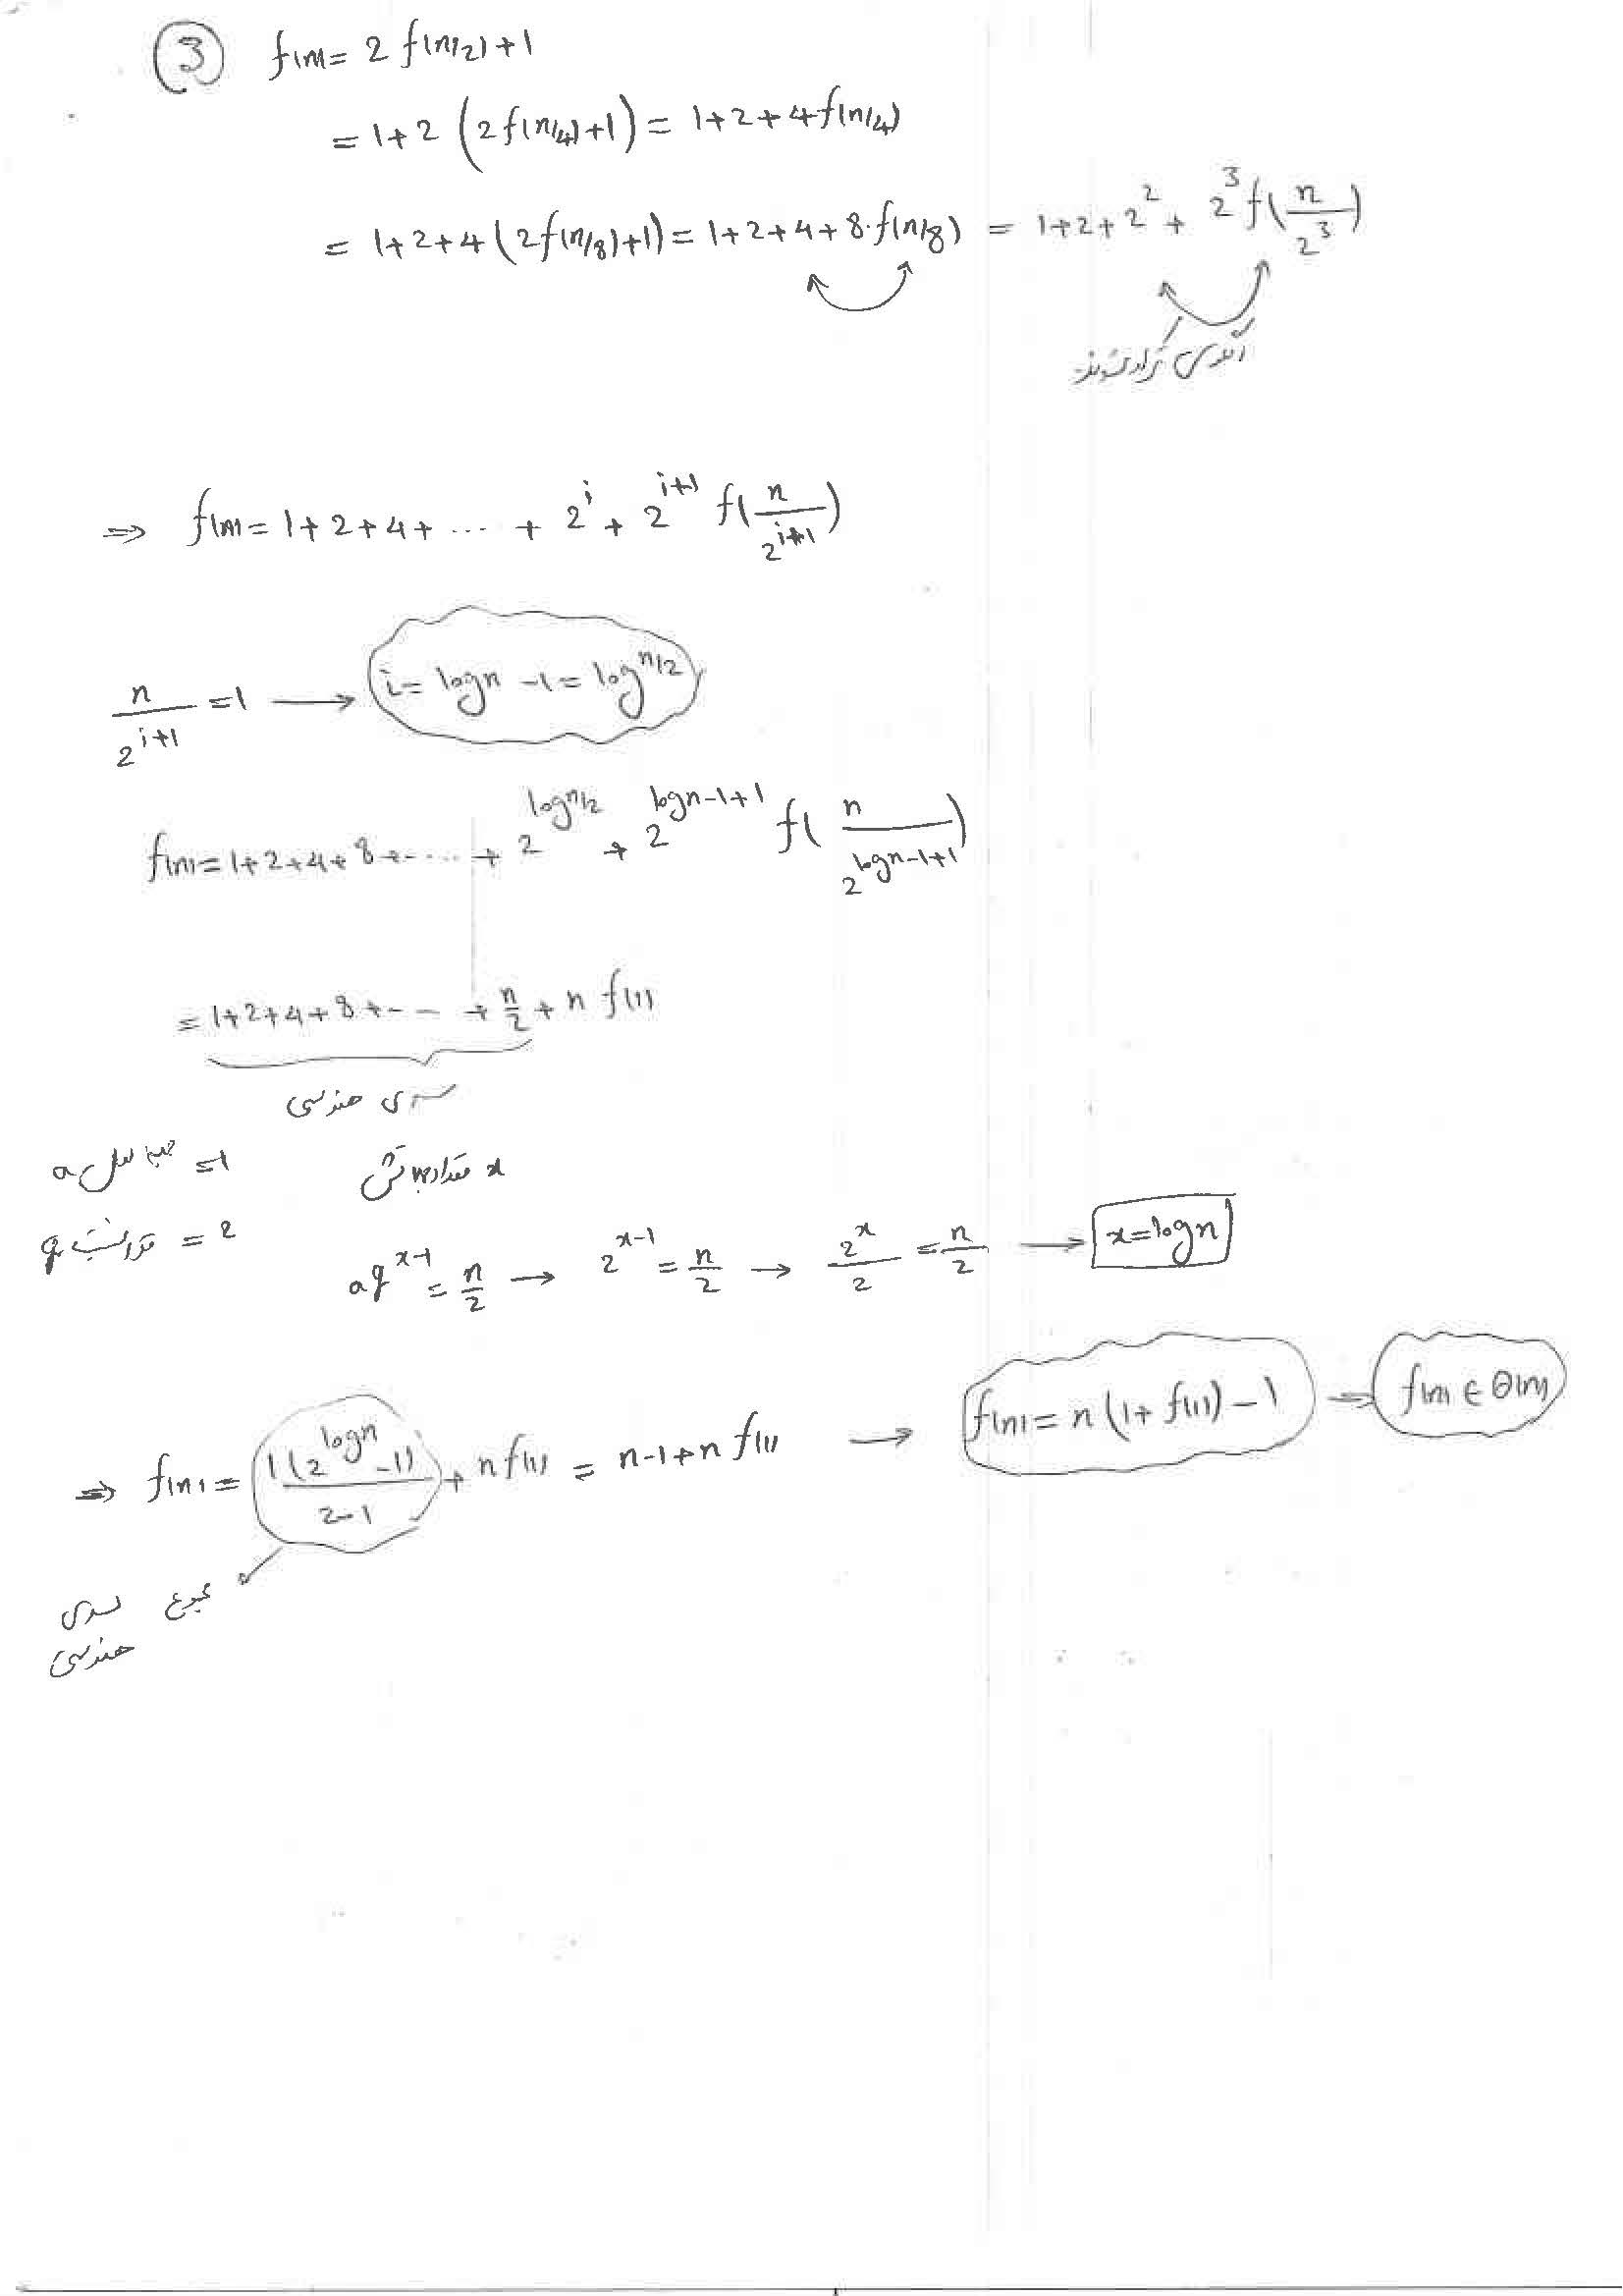 ③ f(n) = 2 f(n/2) + 1
= 1+2 (2f(n/4)+1) = 1+2+4f(n/4)
= 1+2+4(2f(n/8)+1) = 1+2+4+8·f(n/8) = 1+2+2^2 + 2^3 f(n/2^3)
⇒ f(n) = 1+2+4+ ... + 2^i + 2^{i+1} f(n/2^{i+1})
n/2^{i+1} = 1 → i = log n - 1 = log^{n/2}
f(n) = 1+2+4+8+ .... + 2^{log n/2} + 2^{log n-1+1} f(n/2^{log n-1+1})
= 1+2+4+8+ -- + n/2 + n f(1)
سری هندسی
a جمله اول = 1
x تعداد جملاتش
q قدر نسبت = 2
aq^{x-1} = n/2 → 2^{x-1} = n/2 → 2^x/2 = n/2 → x = log n
⇒ f(n) = 1(2^{log n} - 1)/(2-1) + n f(1) = n-1+n f(1) → f(n) = n (1+ f(1)) - 1 → f(n) ∈ Θ(n)
مجموع سری
هندسی